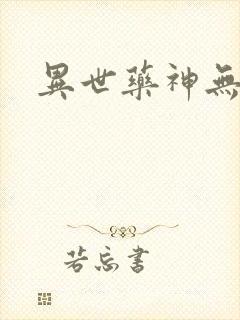 異世藥神無
若忘書